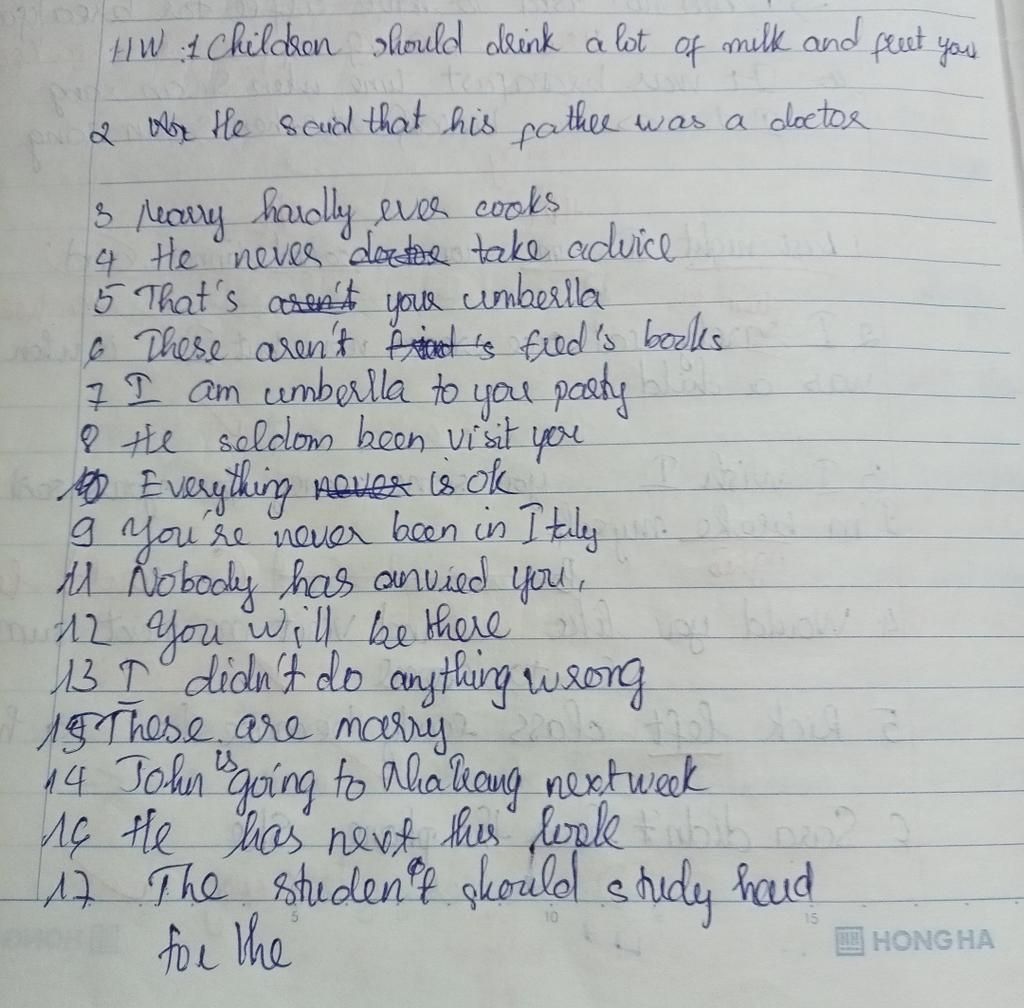 HW : 1 Children should drink a lot of milk and
2 He said that his father was a doctor
3 Marry hardly ever cooks
4 He never take advice
5 That's aren't your umberlla
6 These aren't fred's books
7 I am umberlla to you party
8 He seldom been visit you
10 Everything never is ok
9 You're never been in Italy
11 Nobody has you,
12 You will be there
13 I didn't do anything wrong
15 These are marry
14 John is going to next week
16 He has this
17 The student should study hard
for the
5 10 15
HONG HA